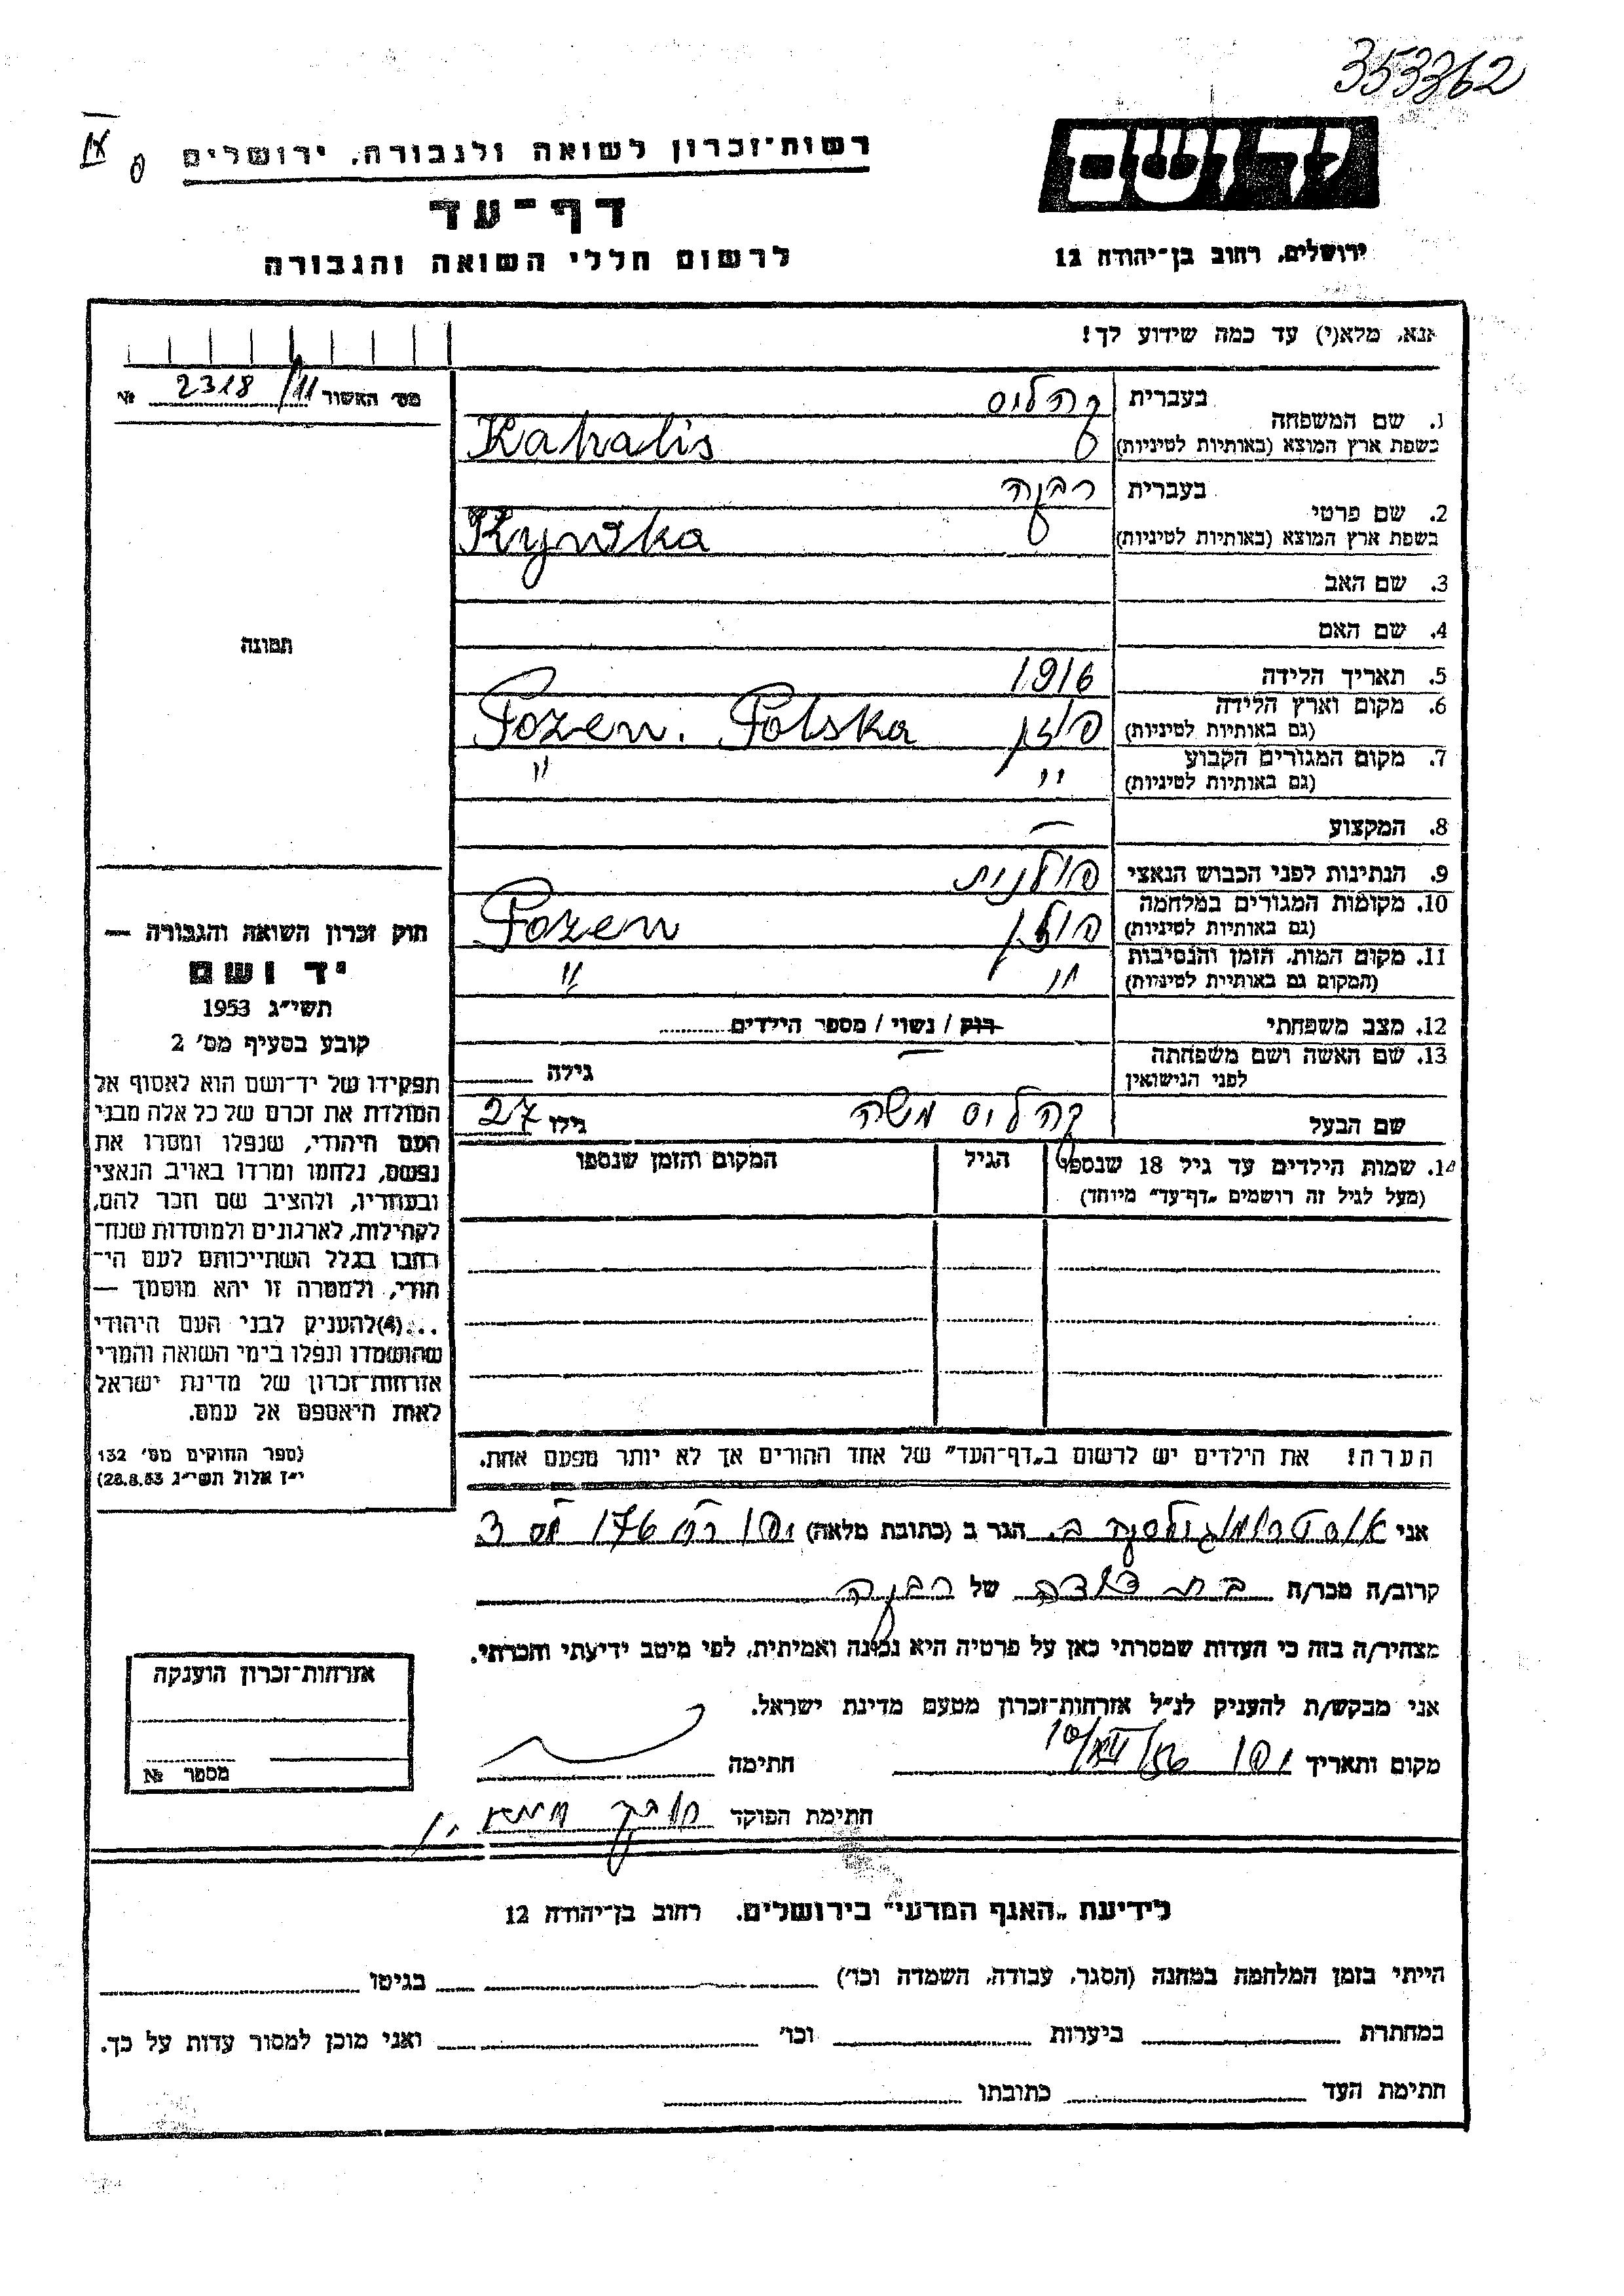 353362
רשות־זכרון לשואה ולגבורה, ירושלים
דף־עד
לרשום חללי השואה והגבורה
יד ושם
ירושלים, רחוב בן־יהודה 12
אנא, מלא(י) עד כמה שידוע לך!
מס׳ האשור 11/ 2318 №
תמונה
1. שם המשפחה
בעברית קהליס
בשפת ארץ המוצא (באותיות לטיניות) Kahalis
2. שם פרטי
בעברית רבקה
בשפת ארץ המוצא (באותיות לטיניות) Rywka
3. שם האב
4. שם האם
5. תאריך הלידה 1916
6. מקום וארץ הלידה
(גם באותיות לטיניות) פוזן Pozen. Polska
7. מקום המגורים הקבוע
(גם באותיות לטיניות) " "
8. המקצוע —
9. הנתינות לפני הכבוש הנאצי פולנית
10. מקומות המגורים במלחמה
(גם באותיות לטיניות) פוזן Pozen
11. מקום המות, הזמן והנסיבות
(המקום גם באותיות לטיניות) " "
12. מצב משפחתי רוק / נשוי / מספר הילדים
13. שם האשה ושם משפחתה
לפני הנישואין — גילה
שם הבעל קהליס משה גילו 27
14. שמות הילדים עד גיל 18 שנספו
(מעל לגיל זה רושמים „דף־עד״ מיוחד)
הגיל
המקום והזמן שנספו
הערה! את הילדים יש לרשום ב„דף־העד״ של אחד ההורים אך לא יותר מפעם אחת.
חוק זכרון השואה והגבורה —
יד ושם
תשי״ג 1953
קובע בסעיף מס׳ 2
תפקידו של יד־ושם הוא לאסוף אל
המולדת את זכרם של כל אלה מבני
העם היהודי, שנפלו ומסרו את
נפשם, נלחמו ומרדו באויב הנאצי
ובעוזריו, ולהציב שם וזכר להם,
לקהילות, לארגונים ולמוסדות שנח־
רבו בגלל השתייכותם לעם הי־
הודי, ולמטרה זו יהא מוסמך —
...(4) להעניק לבני העם היהודי
שהושמדו ונפלו בימי השואה והמרי
אזרחות־זכרון של מדינת ישראל
לאות היאספם אל עמם.
(ספר החוקים מס׳ 132
י״ז אלול תשי״ג 28.8.53)
אני הגר ב (כתובת מלאה) יפו 176 3
קרוב/ה מכר/ה בת דודה של רבקה
מצהיר/ה בזה כי העדות שמסרתי כאן על פרטיה היא נכונה ואמיתית, לפי מיטב ידיעתי והכרתי.
אני מבקש/ת להעניק לנ״ל אזרחות־זכרון מטעם מדינת ישראל.
מקום ותאריך יפו חתימה
חתימת הפוקד
אזרחות־זכרון הוענקה
מספר №
לידיעת „האגף המדעי״ בירושלים. רחוב בן־יהודה 12
הייתי בזמן המלחמה במחנה (הסגר, עבודה, השמדה וכו׳) בגיטו
במחתרת ביערות וכו׳ ואני מוכן למסור עדות על כך.
חתימת העד כתובתו